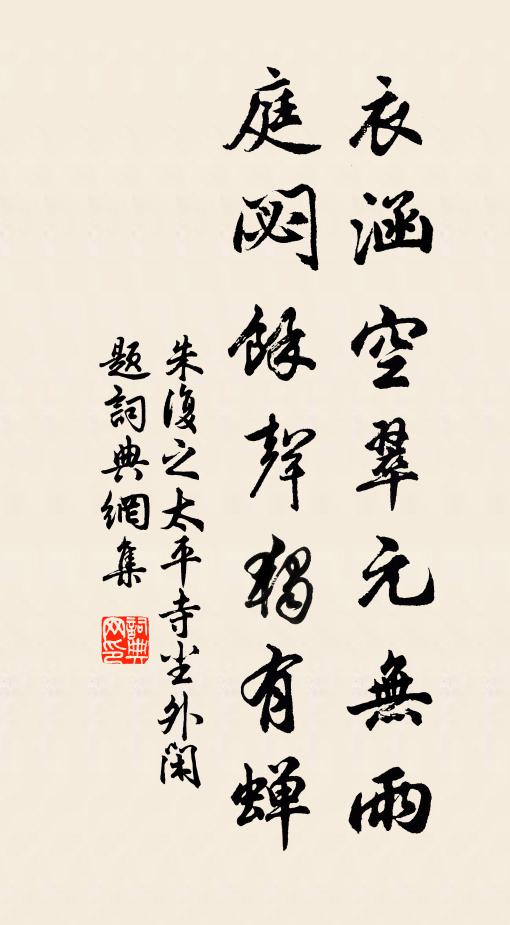 衣涵空翠元無雨
庭閟餘聲獨有蝉
朱復之太平寺尘外閑
題詞典網集
詞典
网印